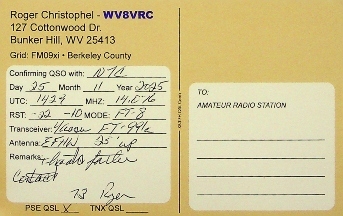 Roger Christophel - WV8VRC
127 Cottonwood Dr.
Bunker Hill, WV 25413
Grid: FM09xi • Berkeley County
Confirming QSO with:
Day 25 Month 11 Year 2025
UTC: 1429 MHZ:
RST: -22 -10 MODE: FT-8
Transceiver: Yaesu FT-991a
Antenna: EFHW 25' up
Remarks: Thanks for the
Contact
73 Roger
PSE QSL X TNX QSL
TO:
AMATEUR RADIO STATION